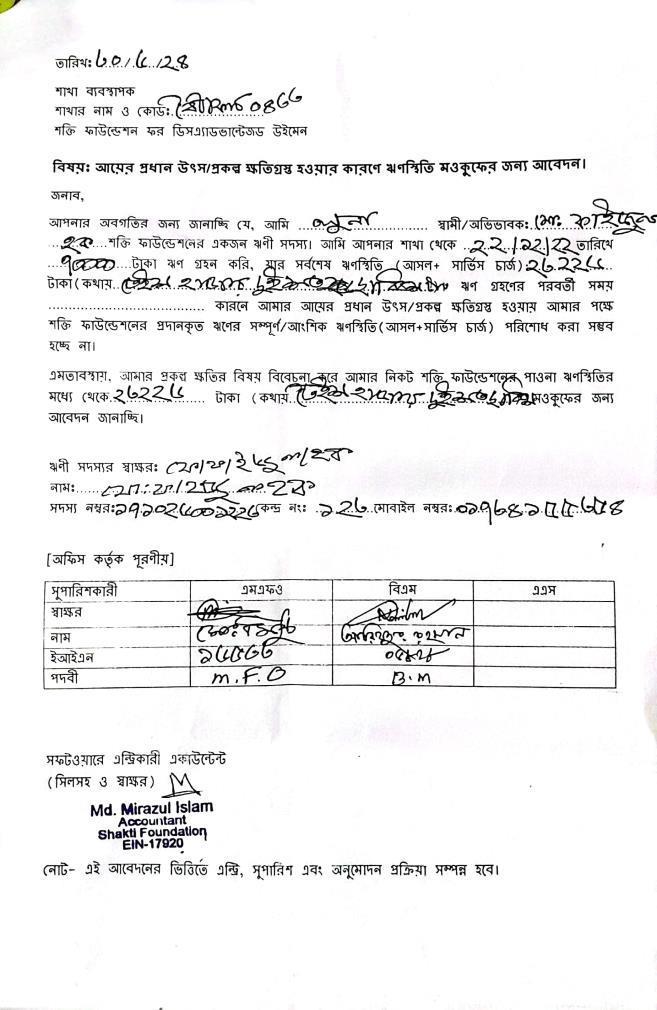 তারিখ: ৬০/৫/২৪
শাখা ব্যবস্থাপক
শাখার নাম ও কোড: ০৪৬৬
শক্তি ফাউন্ডেশন ফর ডিসএ্যাডভান্টেজড উইমেন
বিষয়: আয়ের প্রধান উৎস/প্রকল্প ক্ষতিগ্রস্থ হওয়ার কারণে ঋণস্থিতি মওকুফের জন্য আবেদন।
জনাব,
আপনার অবগতির জন্য জানাচ্ছি যে, আমি লুনা স্বামী/অভিভাবক: মো: ফাইজুল
হক শক্তি ফাউন্ডেশনের একজন ঋণী সদস্য। আমি আপনার শাখা থেকে ২২/১২/২২ তারিখে
৭০০০০ টাকা ঋণ গ্রহন করি, যার সর্বশেষ ঋণস্থিতি (আসল+ সার্ভিস চার্জ) ২৩২২৫
টাকা (কথায় তেইশ হাজার দুইশত পঁচিশ ঋণ গ্রহণের পরবর্তী সময়
কারনে আমার আয়ের প্রধান উৎস/প্রকল্প ক্ষতিগ্রস্ত হওয়ায় আমার পক্ষে
শক্তি ফাউন্ডেশনের প্রদানকৃত ঋণের সম্পূর্ণ/আংশিক ঋণস্থিতি(আসল+সার্ভিস চার্জ) পরিশোধ করা সম্ভব
হচ্ছে না।
এমতাবস্থায়, আমার প্রকল্প ক্ষতির বিষয় বিবেচনা করে আমার নিকট শক্তি ফাউন্ডেশনের পাওনা ঋণস্থিতির
মধ্যে থেকে ২৩২২৫ টাকা (কথায় তেইশ হাজার দুইশত পঁচিশ মওকুফের জন্য
আবেদন জানাচ্ছি।
ঋণী সদস্যর স্বাক্ষর: মো: ফাইজুল হক
নাম: মো: ফাইজুল হক
সদস্য নম্বর: কেন্দ্র নং: ১২৬ মোবাইল নম্বর:
[অফিস কর্তৃক পূরণীয়]
সুপারিশকারী এমএফও বিএম এএস
স্বাক্ষর
নাম রহমান
ইআইএন
পদবী M.F.O B.M
সফটওয়ারে এন্ট্রিকারী একাউন্টেন্ট
(সিলসহ ও স্বাক্ষর)
Md. Mirazul Islam
Accountant
Shakti Foundation
EIN-17920
নোট- এই আবেদনের ভিত্তিতে এন্ট্রি, সুপারিশ এবং অনুমোদন প্রক্রিয়া সম্পন্ন হবে।